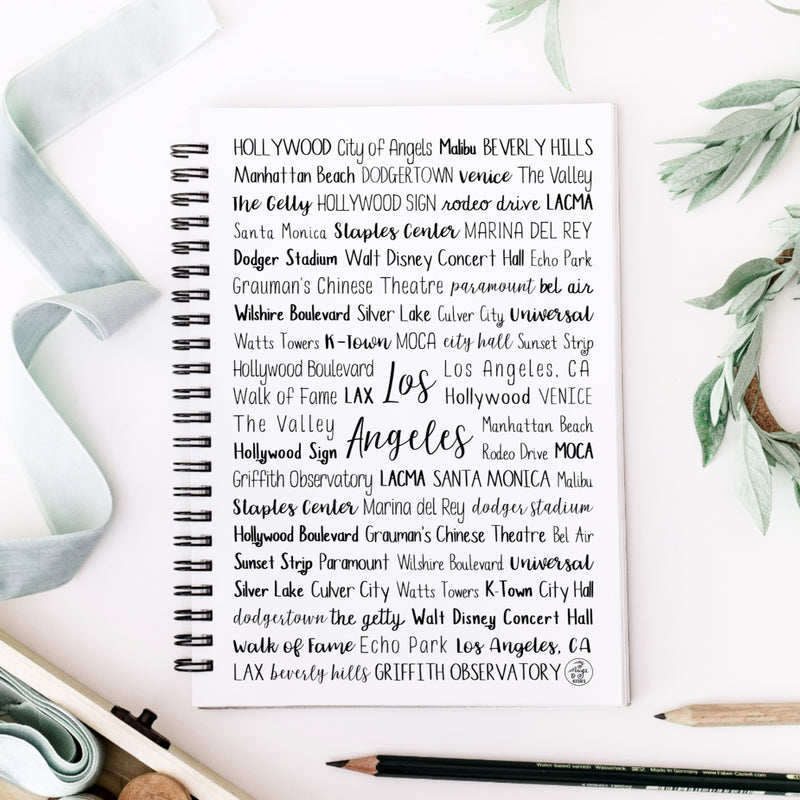 HOLLYWOOD City of Angels Malibu BEVERLY HILLS
Manhattan Beach DODGERTOWN venice The Valley
The Getty HOLLYWOOD SIGN rodeo drive LACMA
Santa Monica Staples Center MARINA DEL REY
Dodger Stadium Walt Disney Concert Hall Echo Park
Grauman's Chinese Theatre paramount bel air
Wilshire Boulevard Silver Lake Culver City universal
Watts Towers K-Town MOCA city hall Sunset Strip
Hollywood Boulevard Los Angeles, CA
Walk of Fame LAX Los Hollywood VENICE
The Valley Angeles Manhattan Beach
Hollywood Sign Rodeo Drive MOCA
Griffith Observatory LACMA SANTA MONICA Malibu
Staples Center Marina del Rey dodger stadium
Hollywood Boulevard Grauman's Chinese Theatre Bel Air
Sunset Strip Paramount Wilshire Boulevard universal
Silver Lake Culver City Watts Towers K-Town City Hall
dodgertown the getty Walt Disney Concert Hall
walk of Fame Echo Park Los Angeles, CA
LAX beverly hills GRIFFITH OBSERVATORY
Made in Germany www.Faber-Castell.com